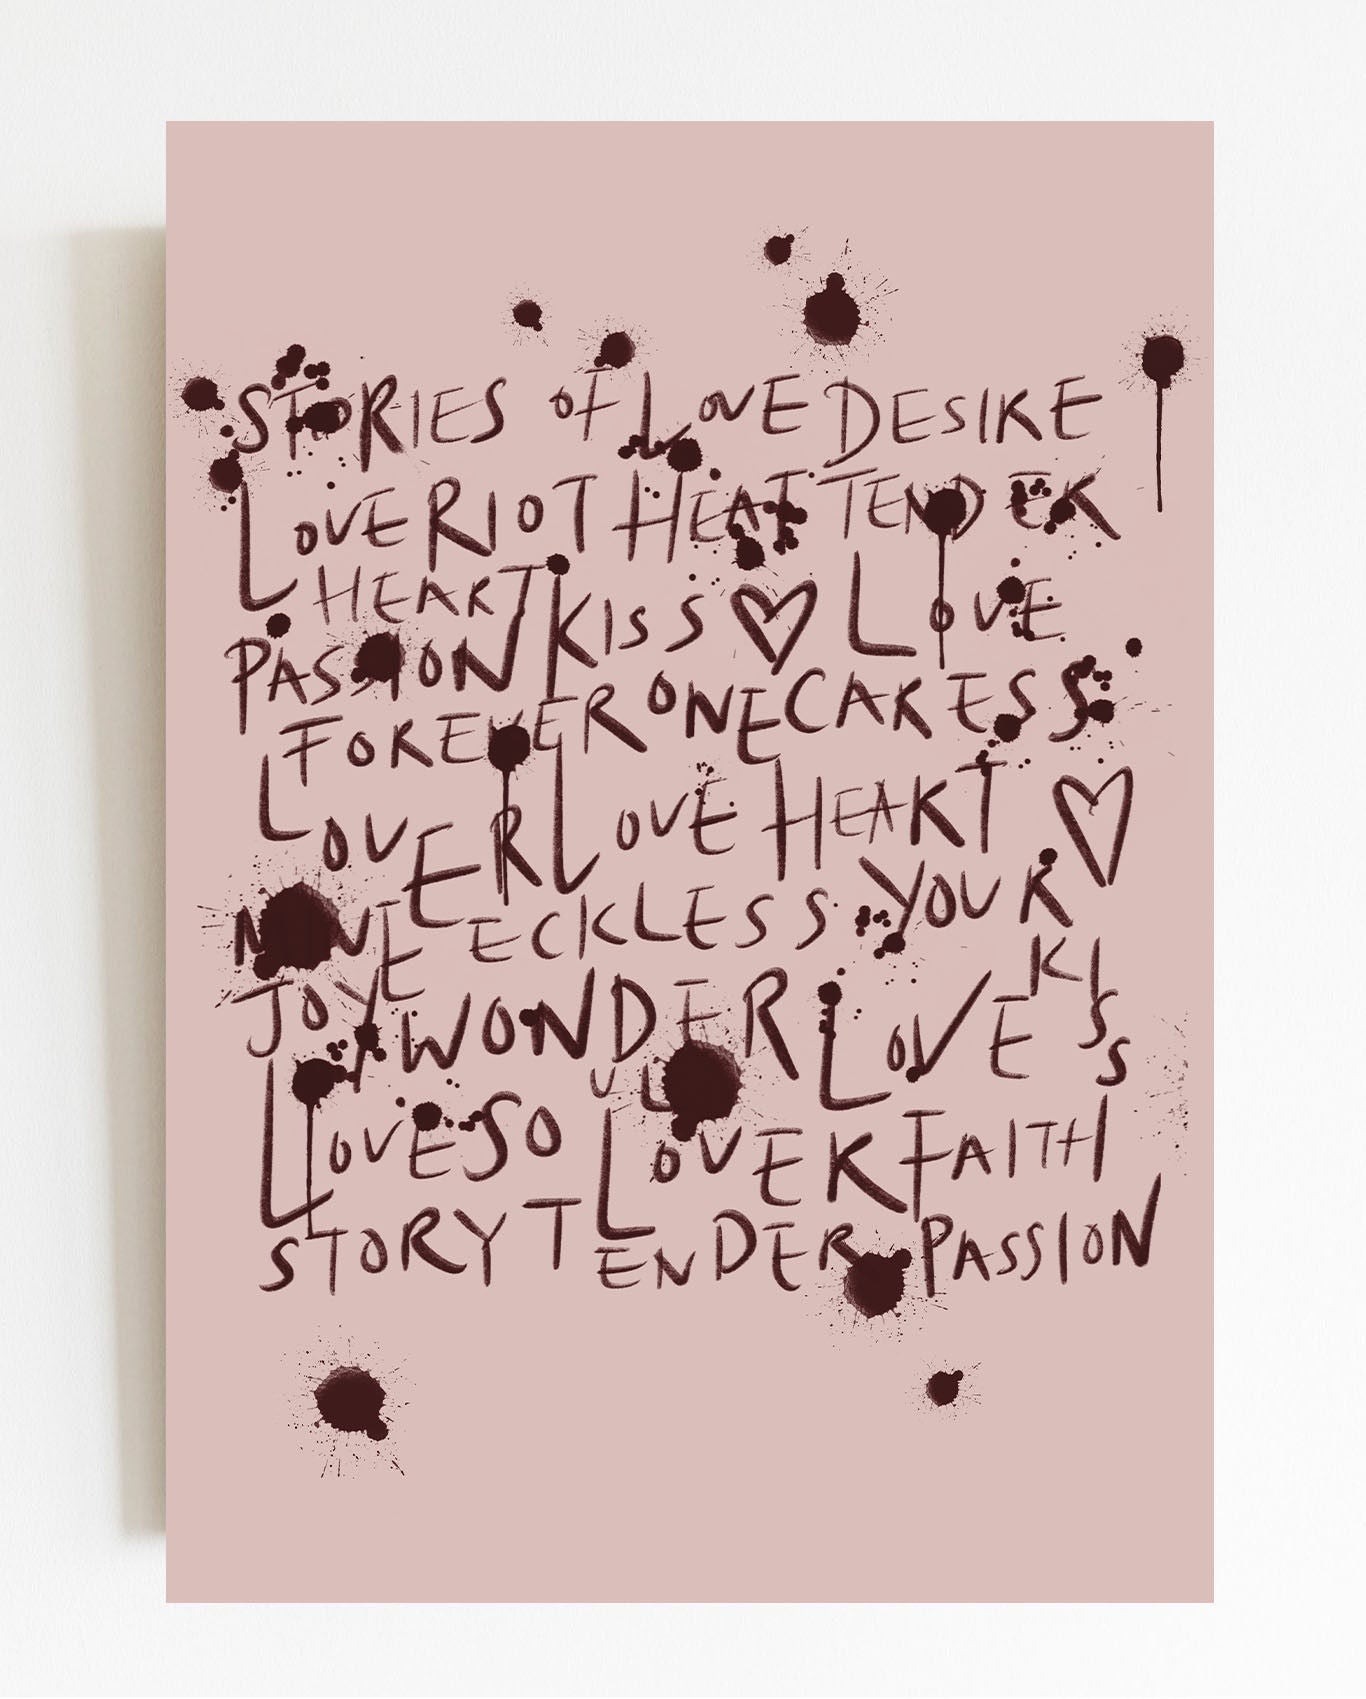 STORIES OF LOVE DESIRE
LOVE RIOT HEAT TENDER
HEART KISS LOVE
PASSION
FOREVER ONE CARESS
LOVER LOVE HEART
ECKLESS YOUR
JOY WONDER LOVE KISS
LOVE SO LOVER FAITH
STORY TENDER PASSION